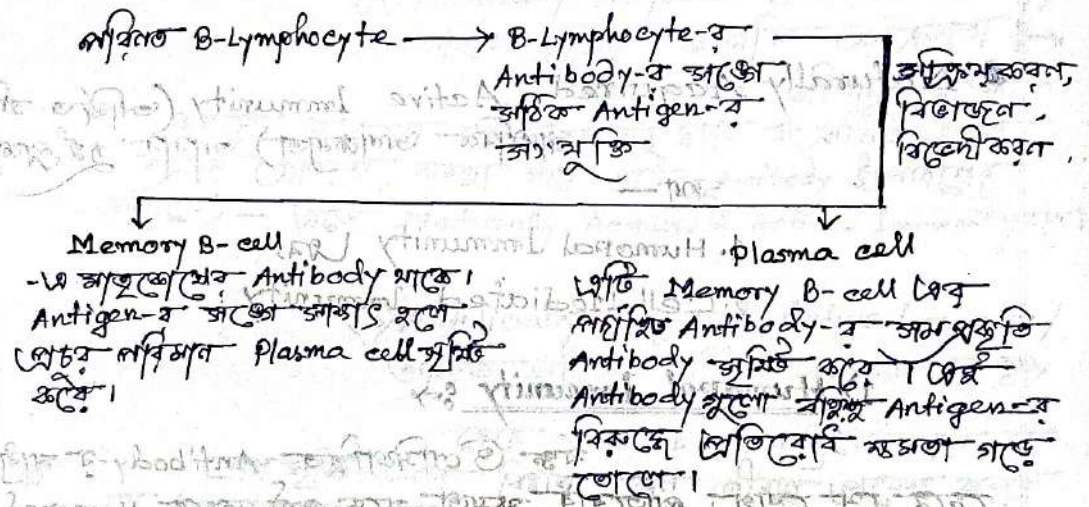 পরিনত B-Lymphocyte → B-Lymphocyte-র
Antibody-র সঙ্গে
সঠিক Antigen-র
সংযুক্তি
সক্রিয়করণ,
বিভাজন,
বিভেদীকরণ,
Memory B-cell
-এ মাতৃকোষের Antibody থাকে।
Antigen-র সঙ্গে সাক্ষাৎ হলে
প্রচুর পরিমান Plasma cell সৃষ্টি
করে।
Plasma cell
এটি Memory B-cell এর
Antibody-র সমপ্রকৃতি
Antibody সৃষ্টি করে। এই
Antibody গুলো Antigen-র
বিরুদ্ধে প্রতিরোধ ক্ষমতা গড়ে
তোলে।